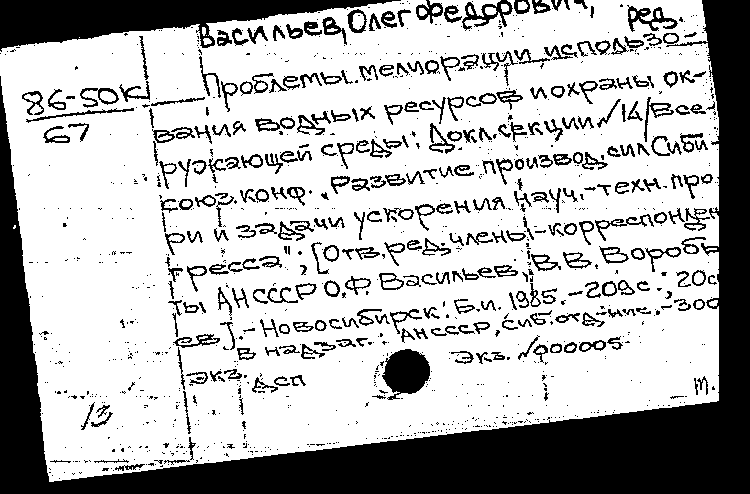 Васильев, Олег Федорович, ред.
86-50к
67
Проблемы мелиорации, использо-
вания водных ресурсов и охраны ок-
ружающей среды: Докл. секции №14/Все-
союз. конф. "Развитие производ. сил Сиби-
ри и задачи ускорения науч.-техн. про
гресса"; [Отв. ред. члены-корреспонден
ты АН СССР О.Ф. Васильев, В.В. Воробь
ев]. - Новосибирск: Б.и. 1985. - 209с.; 20с
В надзаг.: АН СССР, Сиб. отд-ние. - 300
экз. ДСП Экз. №000005
13 т.